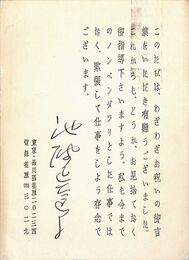 このたびは、わざわざお祝いの御言
葉をいただき有難うございました。
これからも、どうか、お見捨てなく
御指導下さいますよう。私も今まで
のノンベンダラリとした仕事では
なく、緊張して仕事をしよう存念で
ございます。
東京・品川区荏原二の二三四
電話荏原